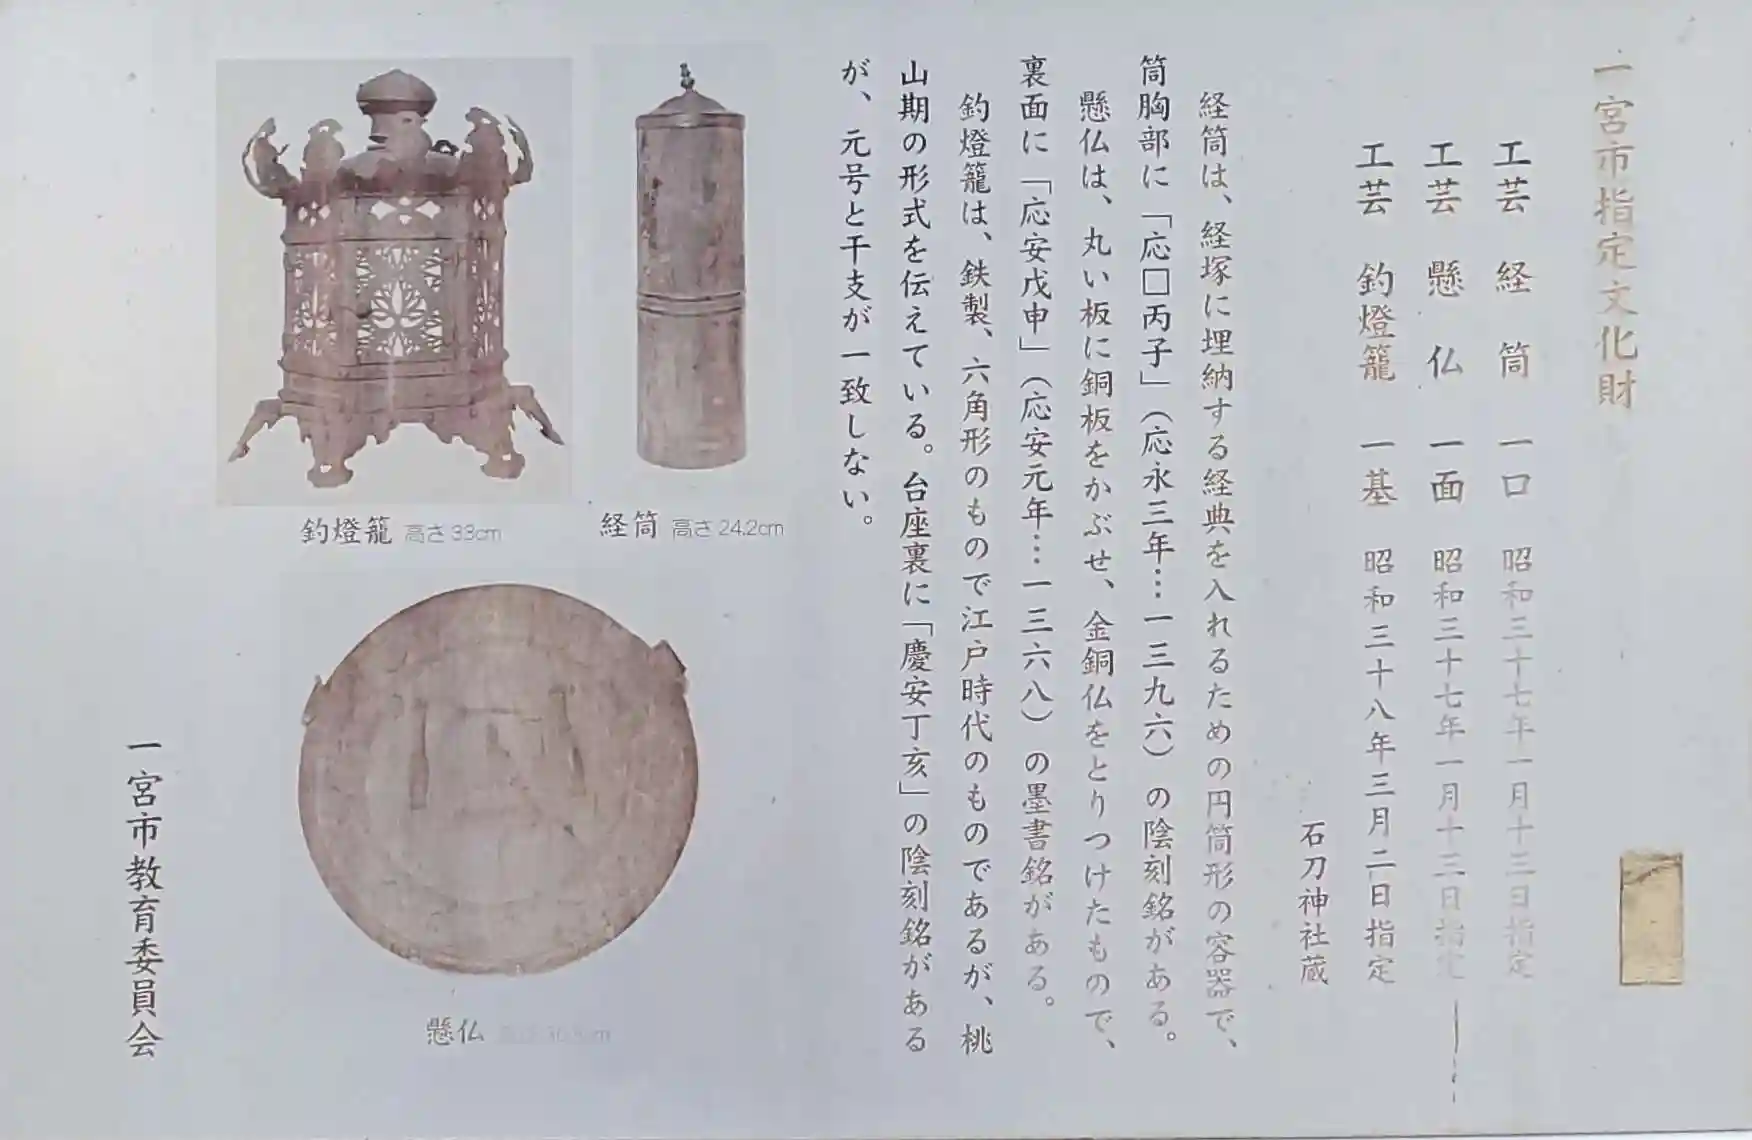 一宮市指定文化財
工芸 経筒 一口 昭和三十七年一月十三日指定
工芸 懸仏 一面 昭和三十七年一月十三日指定
工芸 釣燈籠 一基 昭和三十八年三月二日指定
石刀神社蔵
経筒は、経塚に埋納する経典を入れるための円筒形の容器で、
筒胸部に「応□丙子」（応永三年…一三九六）の陰刻銘がある。
懸仏は、丸い板に銅板をかぶせ、金銅仏をとりつけたもので、
裏面に「応安戊申」（応安元年…一三六八）の墨書銘がある。
釣燈籠は、鉄製、六角形のもので江戸時代のものであるが、桃
山期の形式を伝えている。台座裏に「慶安丁亥」の陰刻銘がある
が、元号と干支が一致しない。
釣燈籠 高さ33cm
経筒 高さ24.2cm
懸仏
一宮市教育委員会